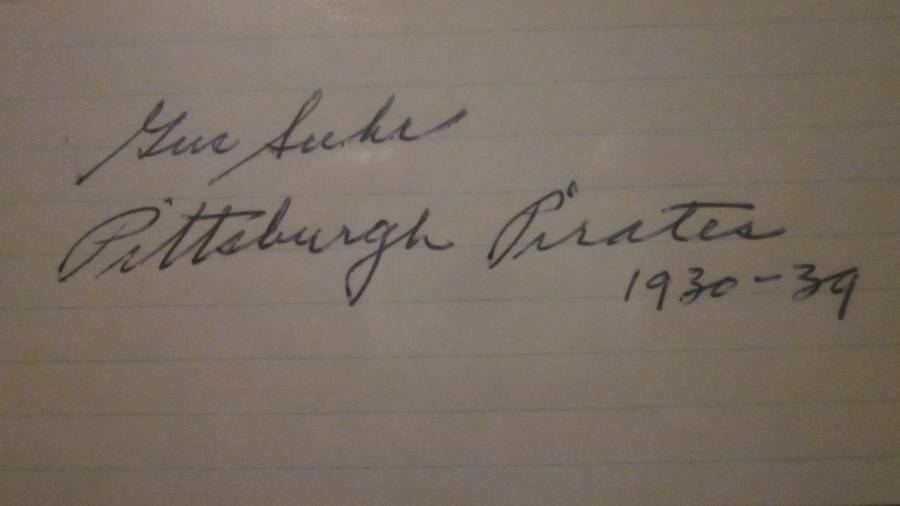 Gus Suhr
Pittsburgh Pirates
1930-39